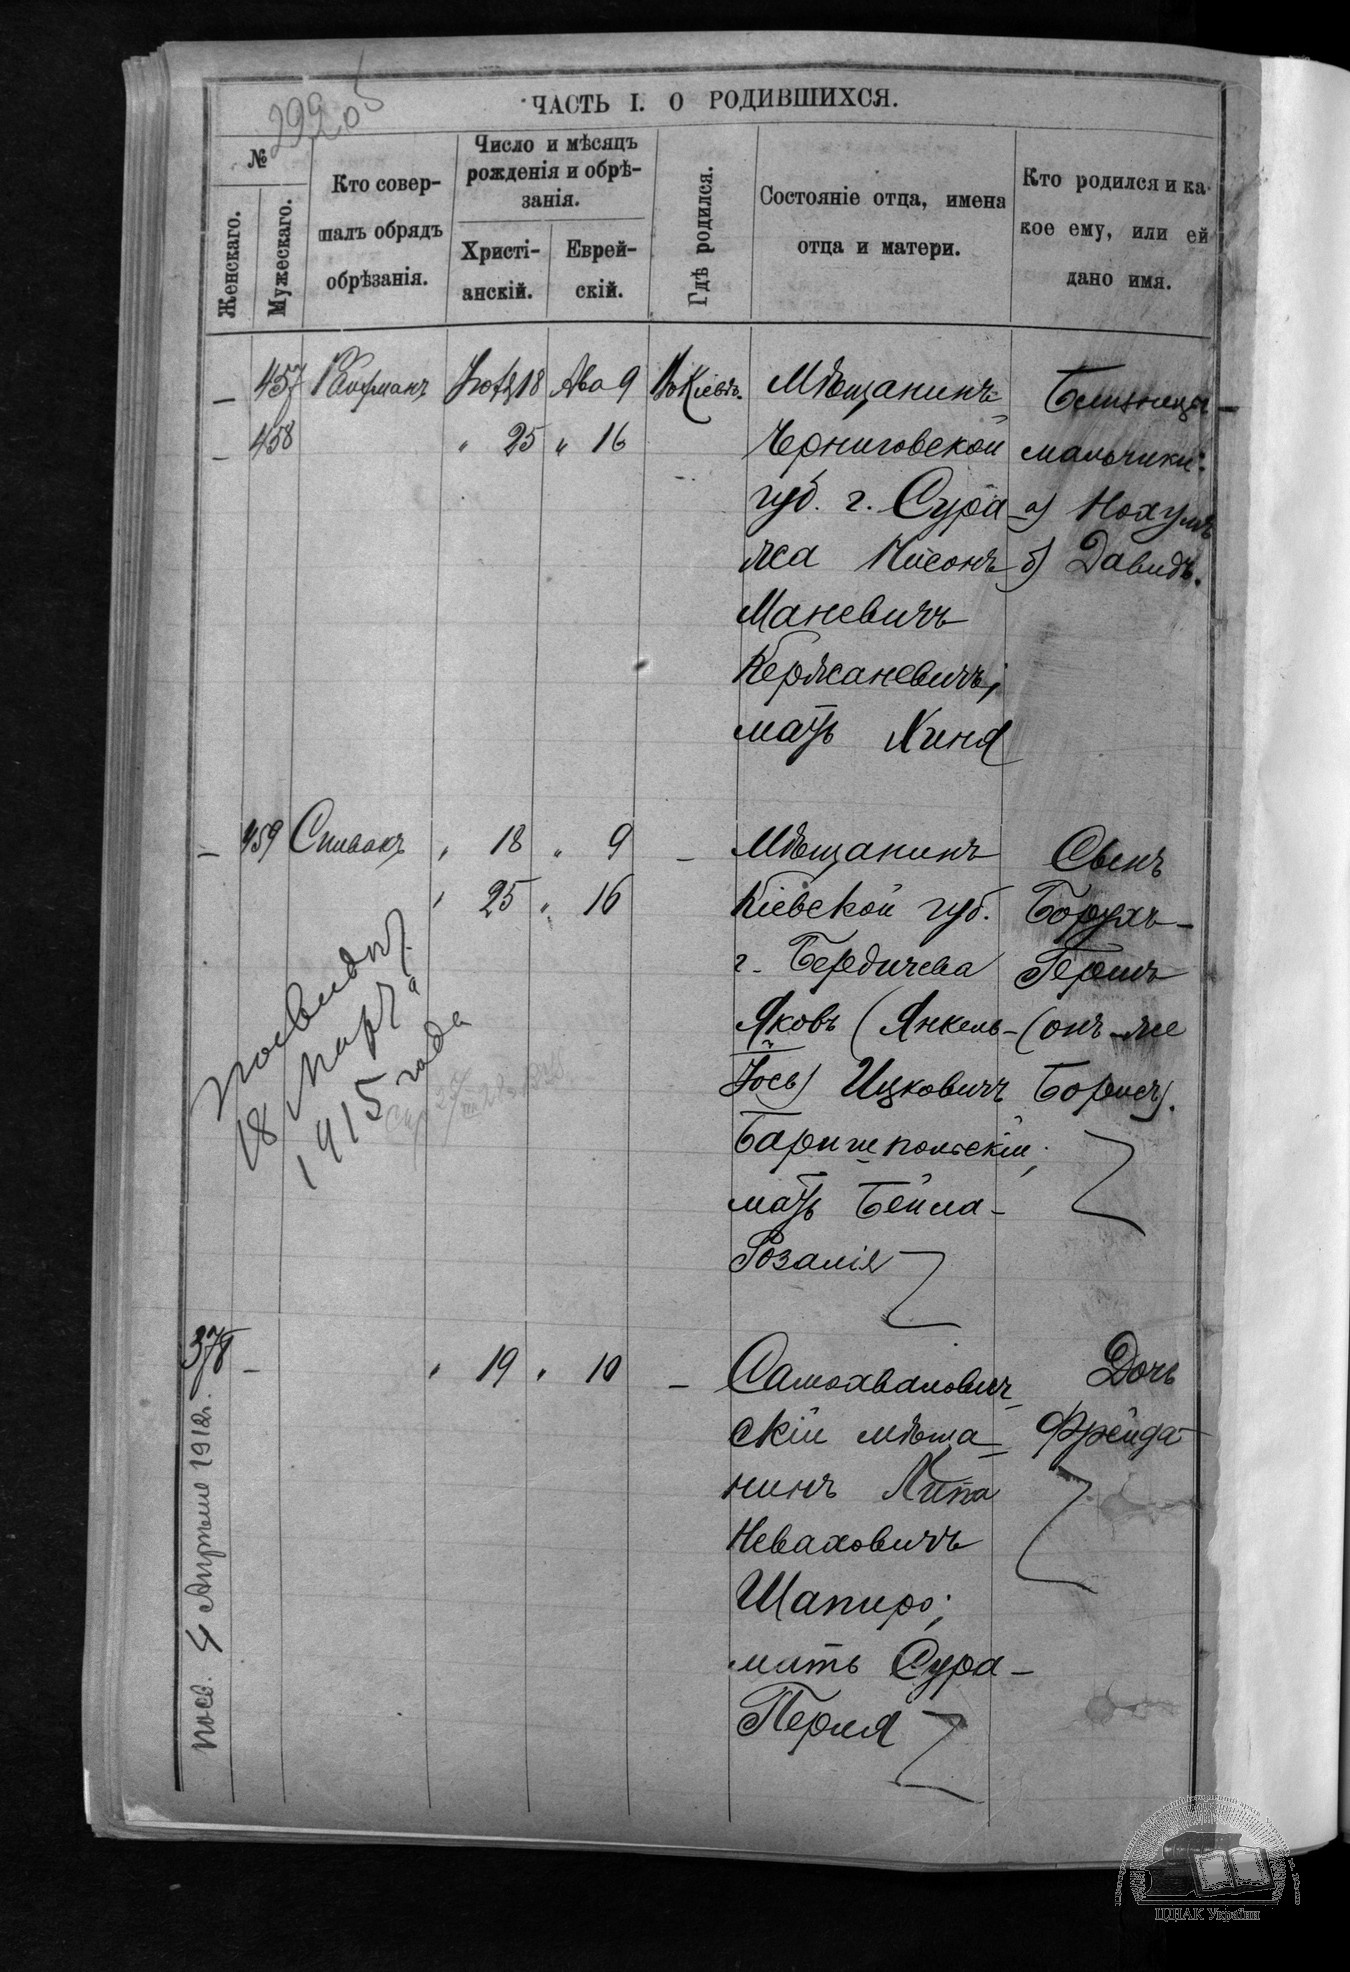 299 об
ЧАСТЬ I. О РОДИВШИХСЯ.
№
Женскаго.
Мужескаго.
Кто совер-
шалъ обрядъ
обрѣзанія.
Число и мѣсяцъ
рожденія и обрѣ-
занія.
Христі-
анскій.
Еврей-
скій.
Гдѣ родился.
Состояніе отца, имена
отца и матери.
Кто родился и ка-
кое ему, или ей
дано имя.
– 457 18 Ава 9 Въ Кіевѣ.
– 458 " 25 " 16
Мѣщанинъ
Черниговской
губ. г. Сура-
жа Нисонъ
Маневичъ
Кержаневичъ;
мать Хиня
Близнецы –
мальчики:
а) Нохумъ
б) Давидъ.
– 459 Спивакъ " 18 " 9 –
" 25 " 16
Мѣщанинъ
Кіевской губ.
г. Бердичева
Яковъ (Янкель-
Іось) Ицковичъ
Баришпольскій;
мать Бейла-
Розалія
Сынъ
Борухъ-
Гершъ
(онъ-же
Борисъ).
18 Март
1915 года
378 – " 19 " 10 –
Самохвалович-
скій мѣща-
нинъ Липа
Неваховичъ
Шапиро;
мать Сура-
Перля
Дочь
Фрейда
посв. 4 Апрѣля 1912 г.
ЦДІАК України